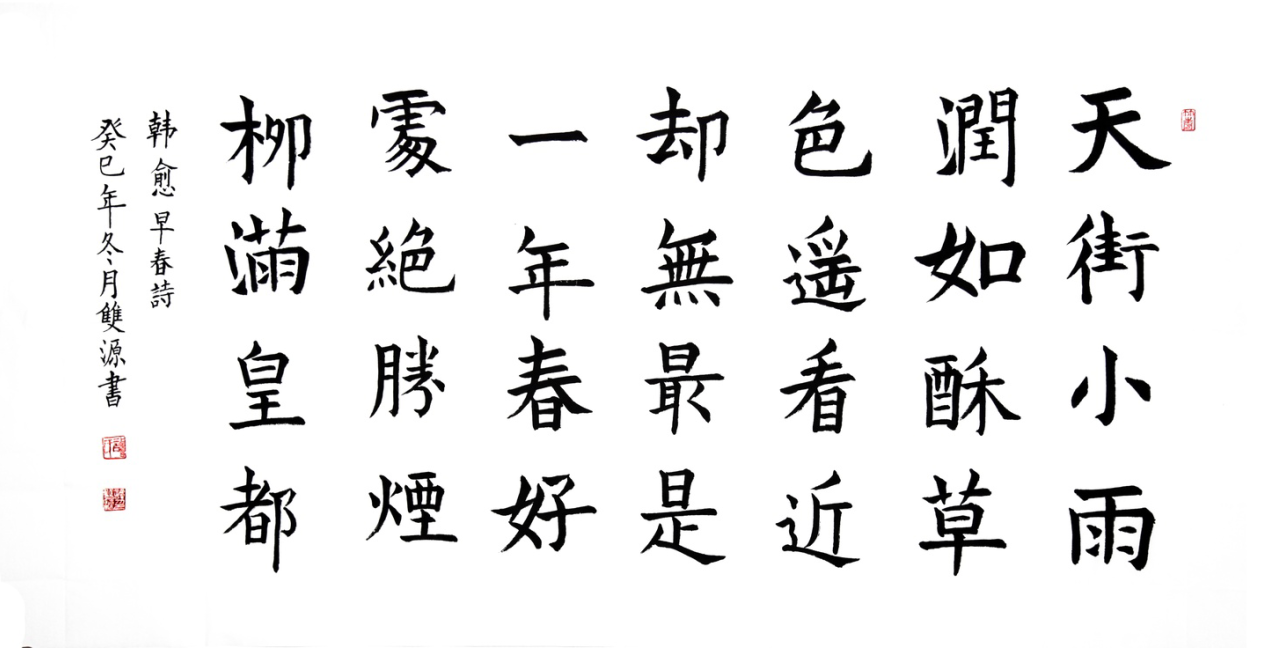 天街小雨
潤如酥草
色遥看近
却無最是
一年春好
處絕勝煙
柳滿皇都
韩愈早春詩
癸巳年冬月雙源書